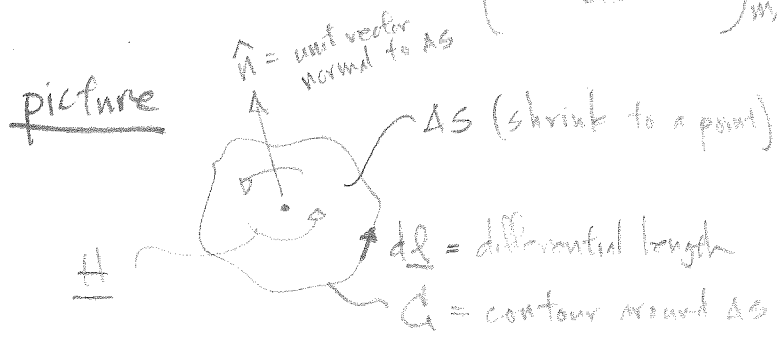 n̂ = unit vector
normal to ΔS
picture
ΔS (shrink to a point)
H
dl = differential length
C = contour around ΔS